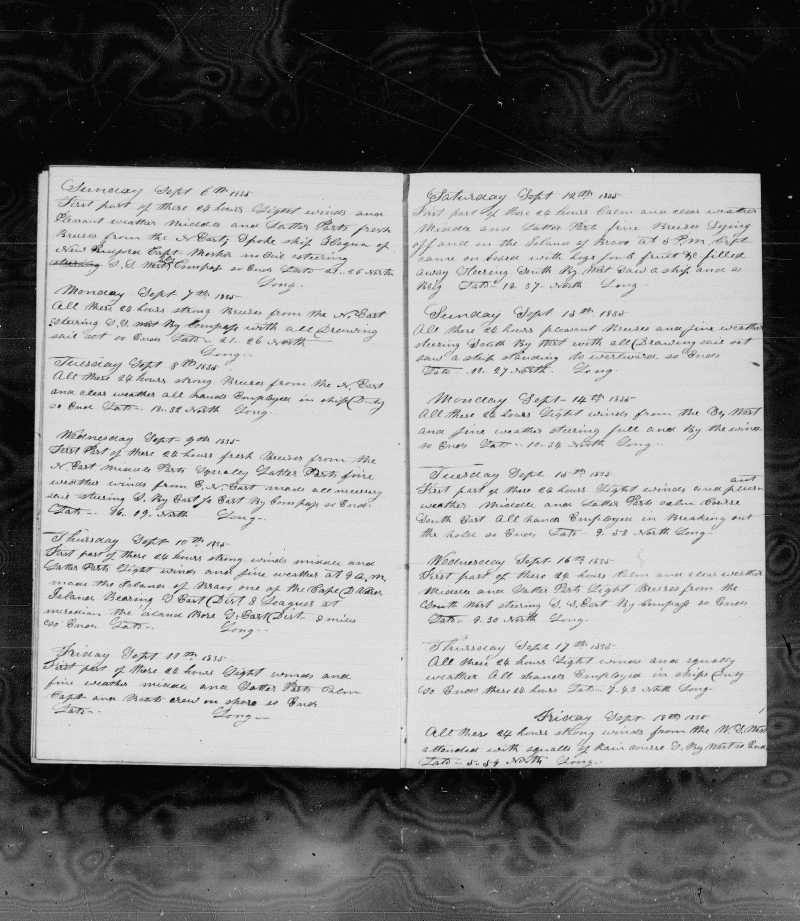 Sunday Sept 6th 1835
First part of these 24 hours Light winds and
Pleasant weather Middle and Latter Parts fresh
Breises from the N. East Spoke ship Hoqua of
New Bedford Capt Mosher no Oil steering
S. S. West by Compass so Ends Lato 21.. 26 North
Long.
Monday Sept 7th 1835
All these 24 hours strong Breises from the N. East
steering S. S. West By Compass with all Drawing
sail set so Ends Lato 21.. 26 North
Long..
Tuesday Sept 8th 1835
All these 24 hours strong Breises from the N. East
and clear weather all hands Employed in ship Duty
so Ends Lato 18.. 32 North Long.
Wednesday Sept 9th 1835
First Part of these 24 hours fresh Breises from the
N. East Middle Parts Squally Latter Parts fine
weather winds from E. N. East made all necessery
sail steering S. By East & East By Compass so Ends
Lato.. 16.. 09. North Long..
Thursday Sept 10th 1835
First part of these 24 hours strong winds middle and
Latter Parts Light winds and fine weather at 9 A.M.
made the Island of Bravo one of the Cape D Verd
Islands Bearing S East Dist 8 Leagues at
meridian the island Bore S. East Dist. 8 miles
so Ends Lato.. Long..
Friday Sept 11th 1835
First part of these 24 hours Light winds and
fine weather middle and Latter Parts Calm
Capt and Boats crew on shore so Ends
Lato.. Long..
Saturday Sept 12th 1835
First part of these 24 hours Calm and clear weather
Middle and Latter Parts fine Breises Lying
off and on the Island of Bravo at 5 P.M. Capt
came on board with hogs fowls fruit &c filled
away Steering South By West Saw a ship and a
Brig Lato.. 13.. 37. North Long.
Sunday Sept 13th 1835
All these 24 hours pleasant Breises and fine weather
steering South By West with all Drawing sail set
saw a ship standing to westward so Ends
Lato.. 11.. 27 North.. Long.
Monday Sept 14th 1835
All these 24 hours Light winds from the West
and fine weather steering full and By the wind
so Ends Lat.. 10.. 34 North Long..
Tuesday Sept 15th 1835
First part of these 24 hours Light winds and pleasant
weather Middle and Latter Parts calm Course
South East All hands Employed in Breaking out
the hold so Ends Lato.. 9. 52 North Long..
Wednesday Sept 16th 1835
First part of these 24 hours Calm and clear weather
Middle and Latter Parts Light Breises from the
South West steering S. S. East By Compass so Ends
Lato.. 9.. 30 North Long.
Thursday Sept 17th 1835
All these 24 hours Light winds and squally
weather All hands Employed in ships Duty
so Ends these 24 hours Lato.. 7.. 43 North Long.
Friday Sept 18th 1835
All these 24 hours strong winds from the W. S. West
attended with squalls of Rain S. By West so Ends
Lato.. 5.. 59 North Long..